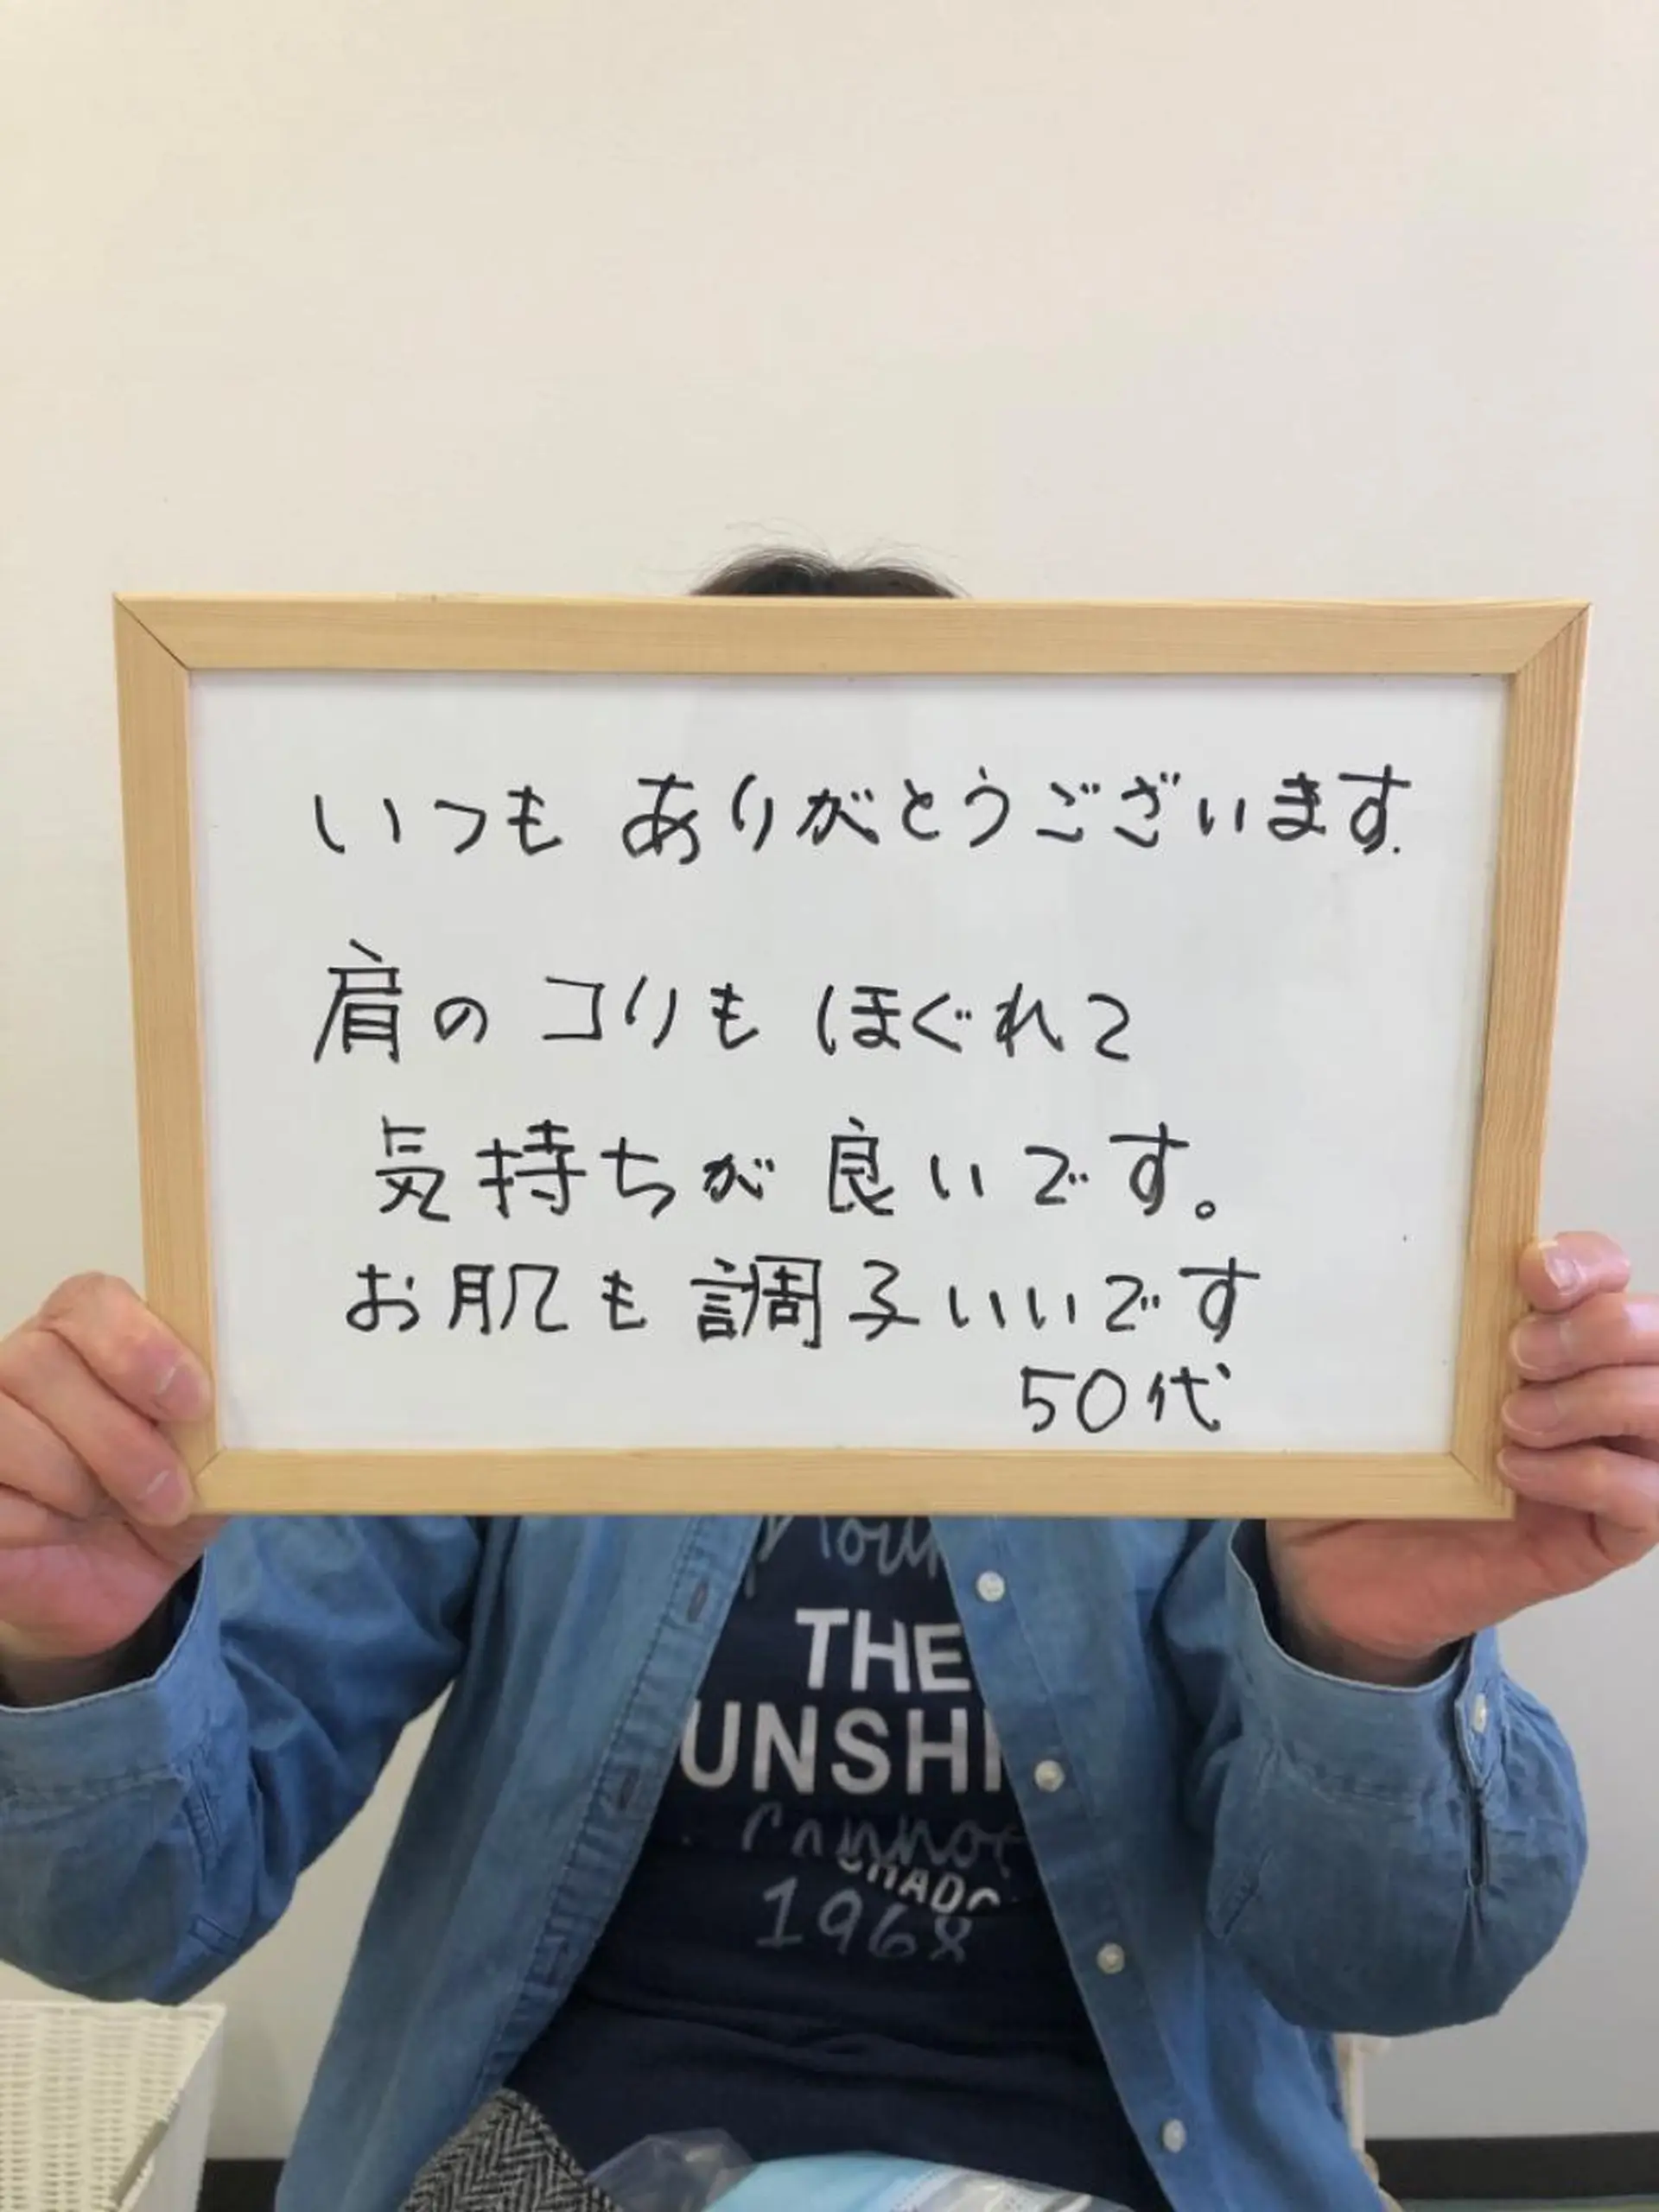 いつも ありがとうございます.
肩の コリも ほぐれて
気持ちが 良いです。
お肌も 調子いいです
50代
THE
UNSHI
1968